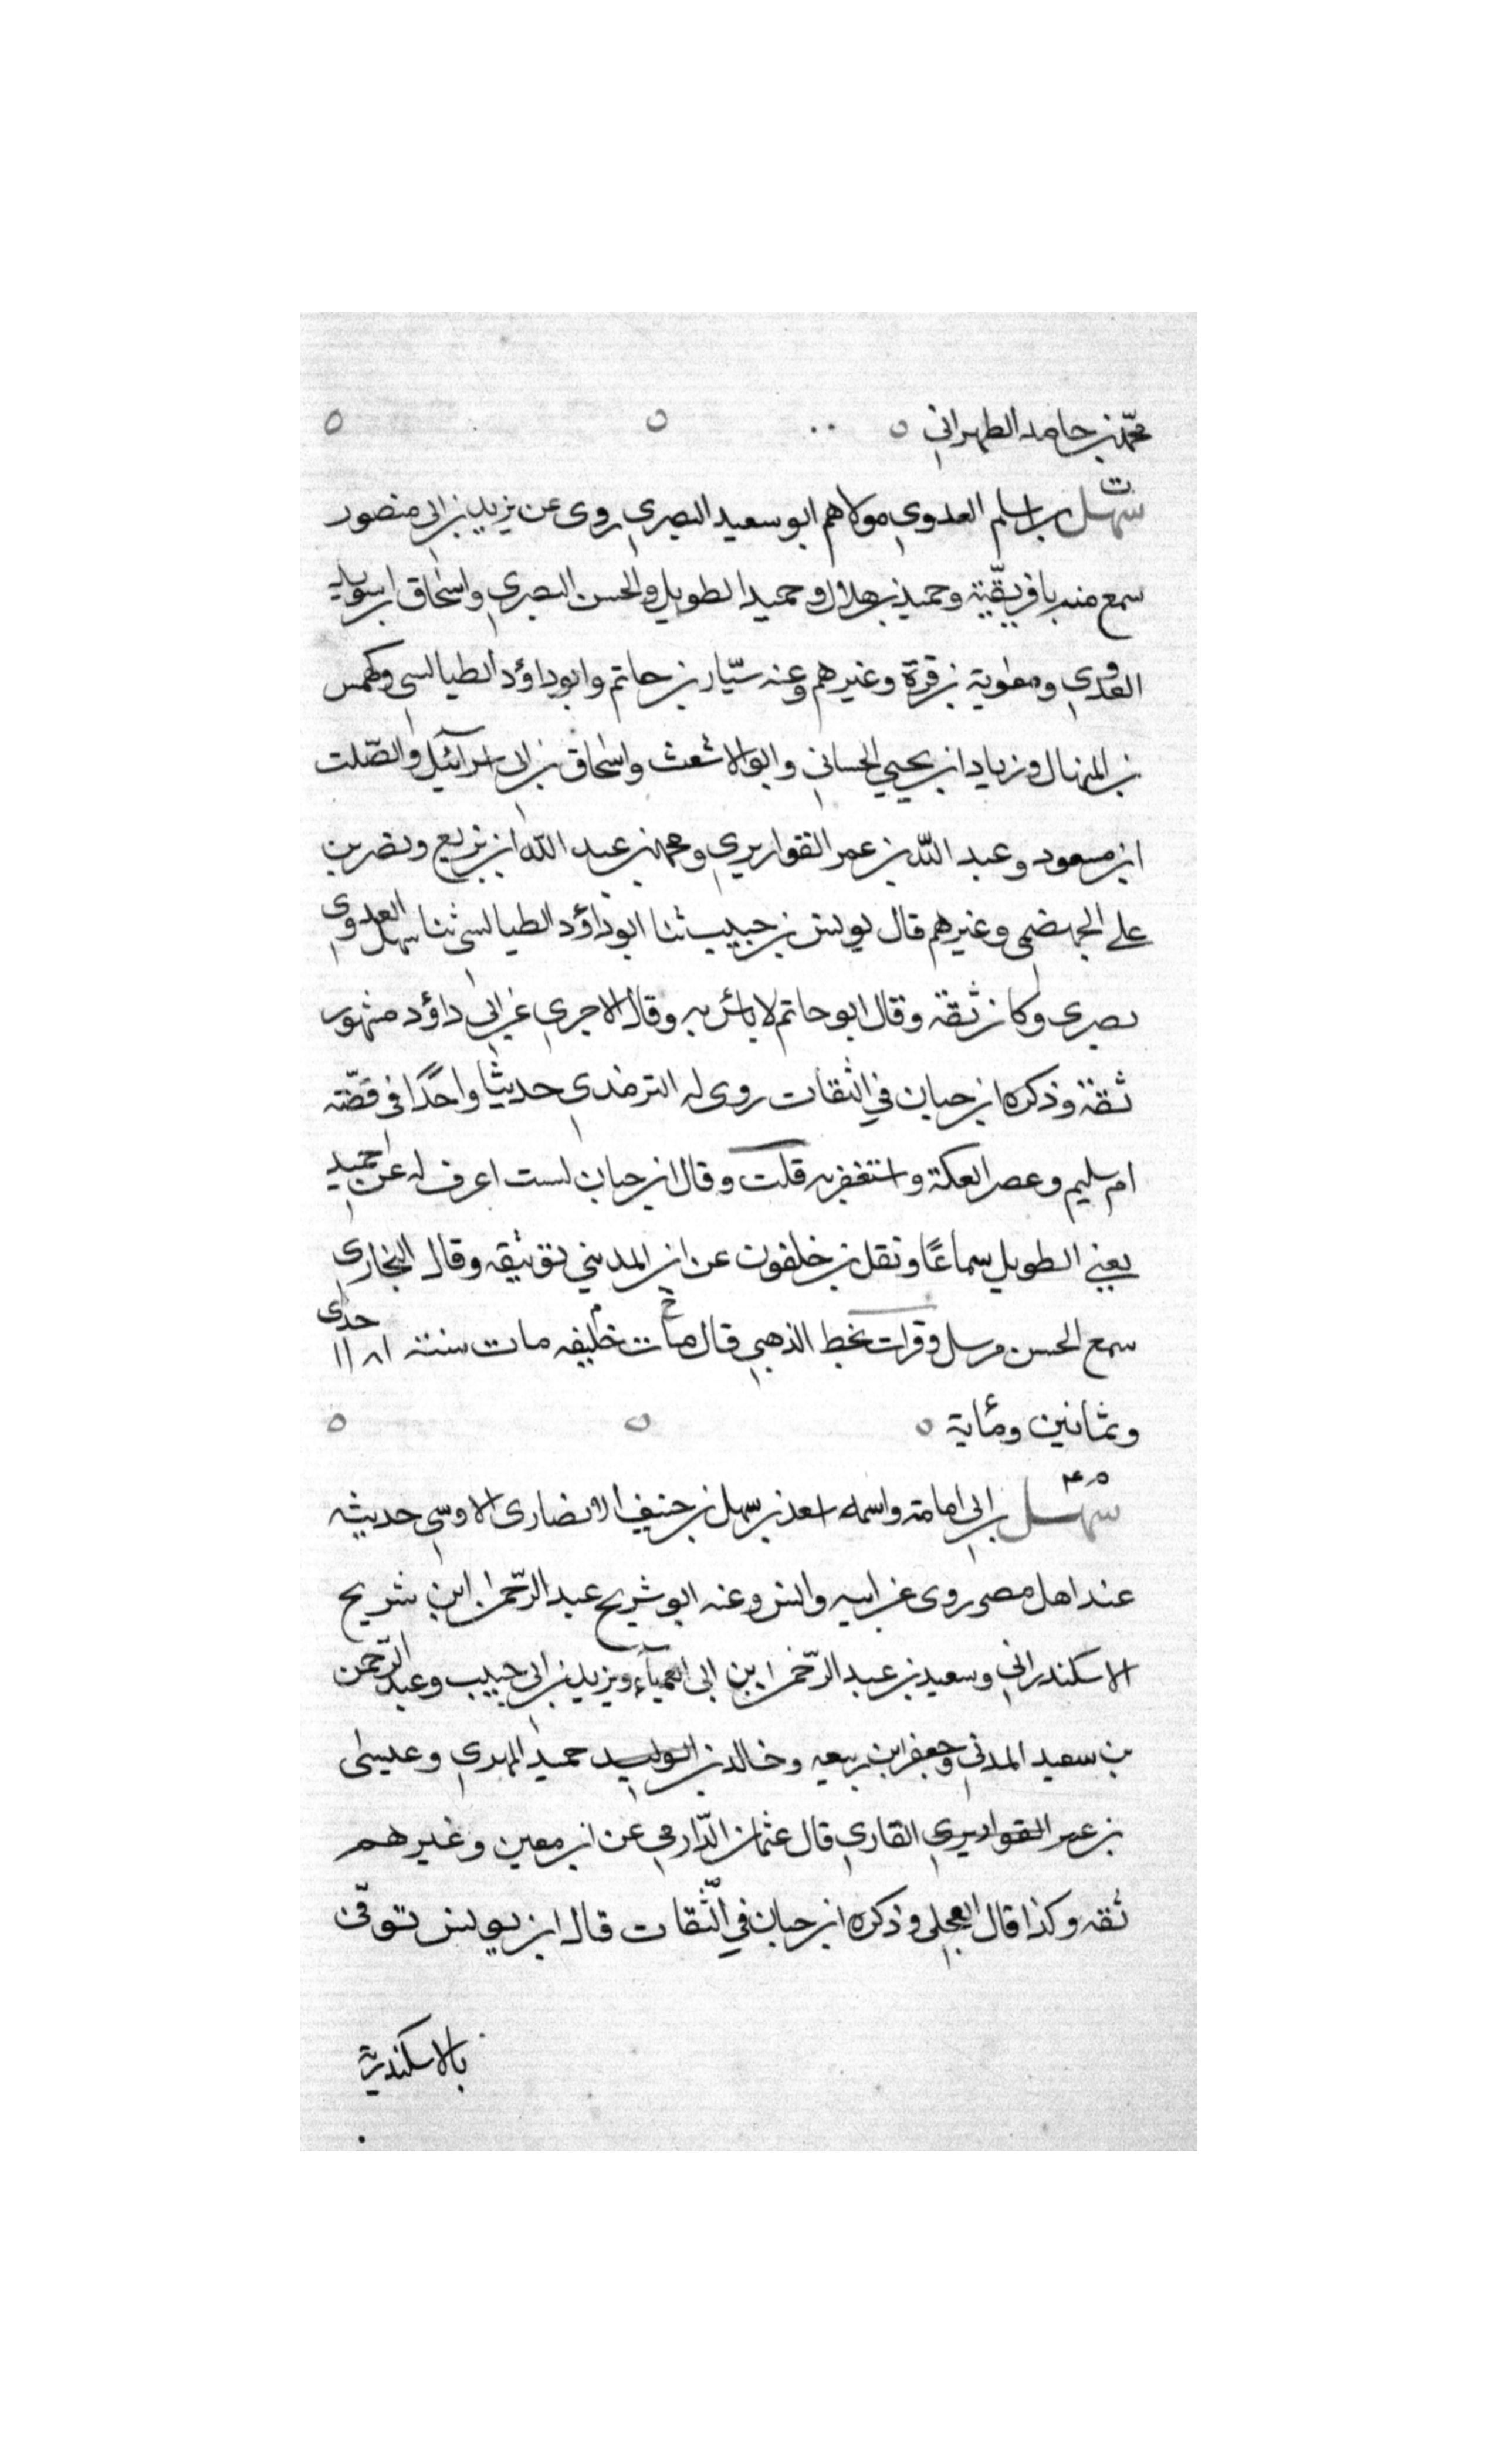 محمد بن حامد الطهراني
ت
سهل بن اسلم العدوي مولاهم ابو سعيد البصري روى عن يزيد بن ابي منصور
سمع منه بافريقية وحميد بن هلال وحميد الطويل والحسن البصري واسحاق ابن سويد
العدوي ومعوية بن قرة وغيرهم وعنه سيّار بن حاتم وابو داؤد الطيالسي وكهمس
بن المنهال وزياد ابن يحيي الحساني وابو الاشعث واسحاق بن ابي اسرآئيل والصّلت
ابن مسعود وعبد الله بن عمر القواريري ومحمد بن عبد الله ابن بزيع ونصر بن
علي الجهضمي وغيرهم قال يونس بن حبيب ثنا ابو داؤد الطيالسي ثنا سهل العدوي
بصري وكان ثقة وقال ابو حاتم لا باس به وقال الاجري عن ابي داؤد مشهور
ثقة وذكره ابن حبان في الثقات روى له الترمذي حديثا واحدًا في قصّة
ام سليم وعصر العكة واستغفر به قلت وقال ابن حبان لست اعرف له عن حميد
يعني الطويل سماعًا ونقل بن خلفون عن ابن المديني توثيقه وقال البخاري
سمع الحسن مرسل وقرات بخط الذهبي قال مات خليفه مات سنة ١٨١١ حدى
وثمانين ومأية
سهل بن ابي امامة واسمه اسعد بن سهل بن حنيف الانصاري الاوسي حديثه
عند اهل مصر روى عن ابيه وانس وعنه ابو شريح عبد الرّحمن ابن شريح
الاسكندراني وسعيد بن عبد الرّحمن ابن ابي العمياء ويزيد بن ابي حبيب وعبد الرّحمن
بن سعيد المدني وجعفر ابن ربيعه وخالد بن الوليد حميد المهدي وعيسى
بن عمر القواريري القاري قال عثمان الدّارمي عن ابن معين وغيرهم
ثقه وكذا قال العجلي وذكره ابن حبان في الثّقات قال ابن يونس توفّى
بالاسكندرية